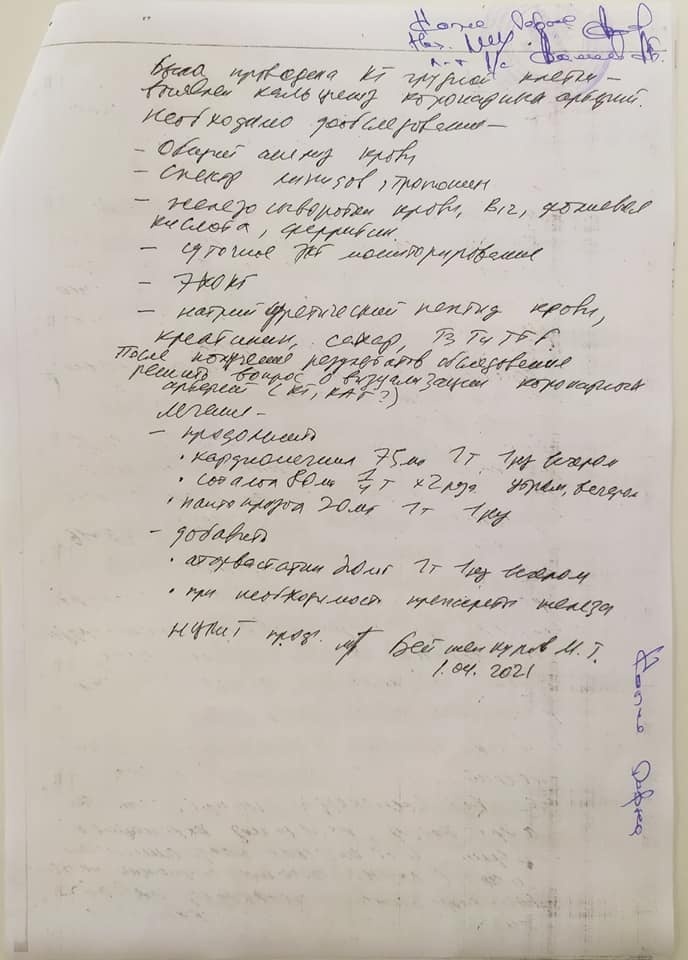 Копия верна
Нач.
Была проведена КТ грудной клетки –
выявлен кальциноз коронарных артерий.
Необходимо дообследование –
– Общий анализ крови
– Спектр липидов, тропонин
– железо сыворотки крови, В12, фолиевая
кислота, ферритин
– суточное ЭКГ мониторирование
– ЭХОКГ
– натрийуретический пептид крови,
креатинин, сахар, Т3 Т4 ТТГ.
После получения результатов обследования
решить вопрос о визуализации коронарных
артерий (КТ, КАГ?)
Лечение –
– продолжить
• кардиомагнил 75мг 1т 1рд вечером
• соталол 80мг 1/4 т х 2 раза утром, вечером
• пантопразол 20мг 1т 1рд
– добавить
• аторвастатин 20мг 1т 1рд вечером
• при необходимости препараты железа
НЦКИТ проф. Бейшенкулов М.Т.
1.04.2021
Копия верна